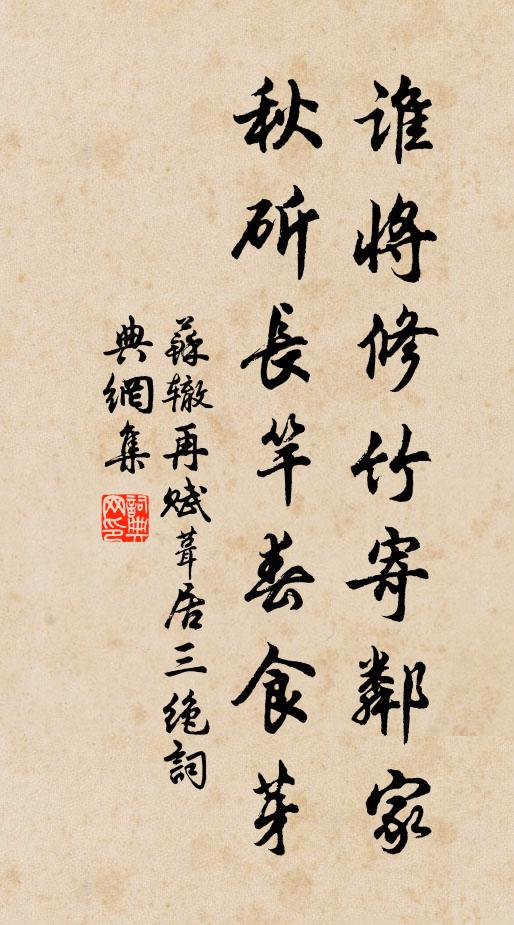 谁將修竹寄鄰家
秋斫長竿春食芽
蘇辙再赋葺居三绝詞
典網集
詞典网印